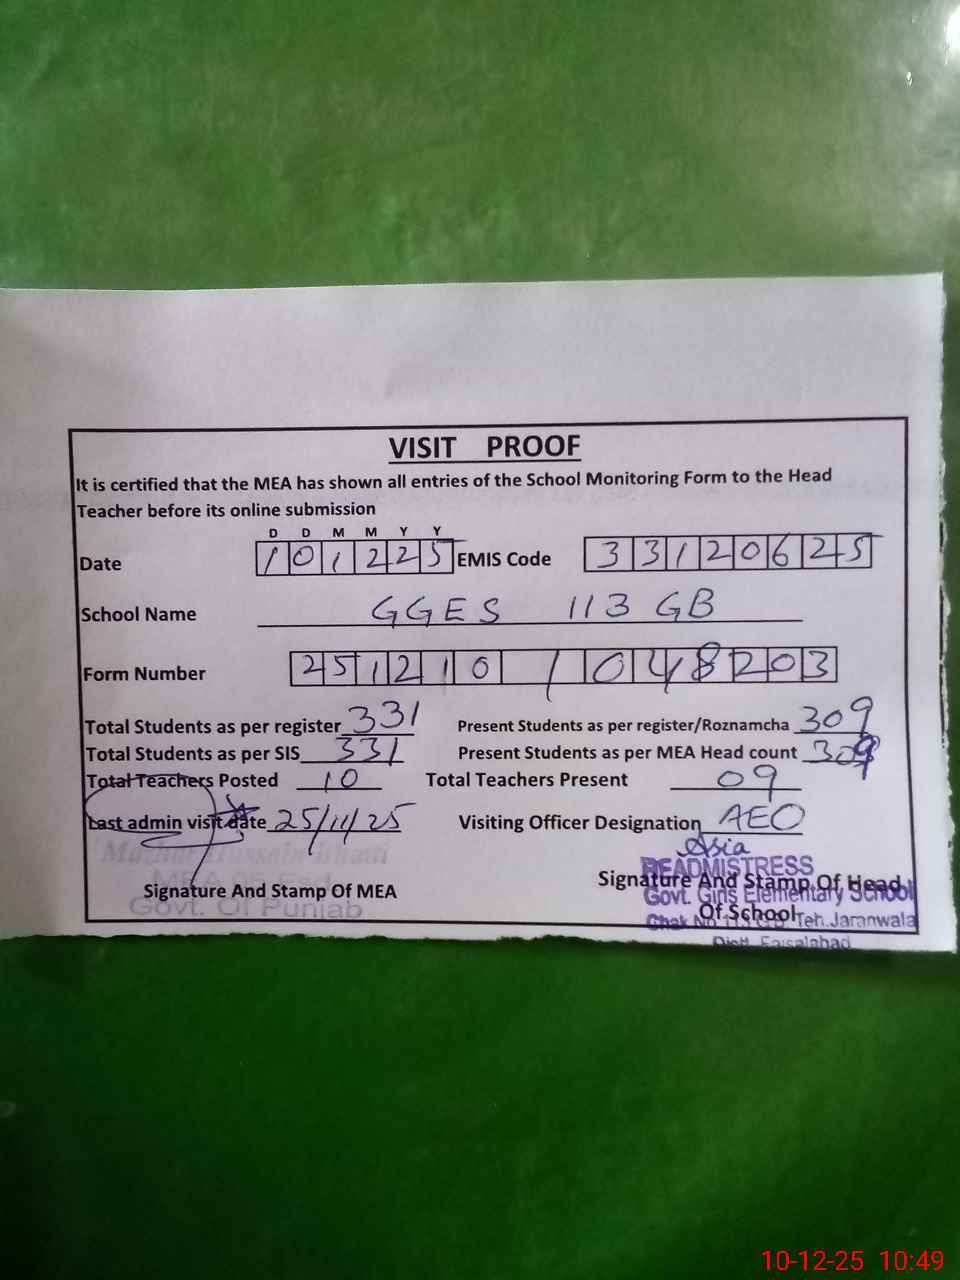 VISIT PROOF
It is certified that the MEA has shown all entries of the School Monitoring Form to the Head
Teacher before its online submission
D D M M Y Y
Date 101225 EMIS Code 33120625
School Name GGES 113 GB
Form Number 251210 / 048203
Total Students as per register 331 Present Students as per register/Roznamcha 309
Total Students as per SIS 331 Present Students as per MEA Head count 309
Total Teachers Posted 10 Total Teachers Present 09
Last admin visit date 25/11/25 Visiting Officer Designation AEO
Asia
Hussain Bhatti
HEADMISTRESS
Signature And Stamp Of MEA Signature And Stamp Of Head
Govt. Girls Elementary School
Govt. Of Punjab Of School
Chak No. 113 G.B. Teh. Jaranwala
Distt. Faisalabad
10-12-25 10:49